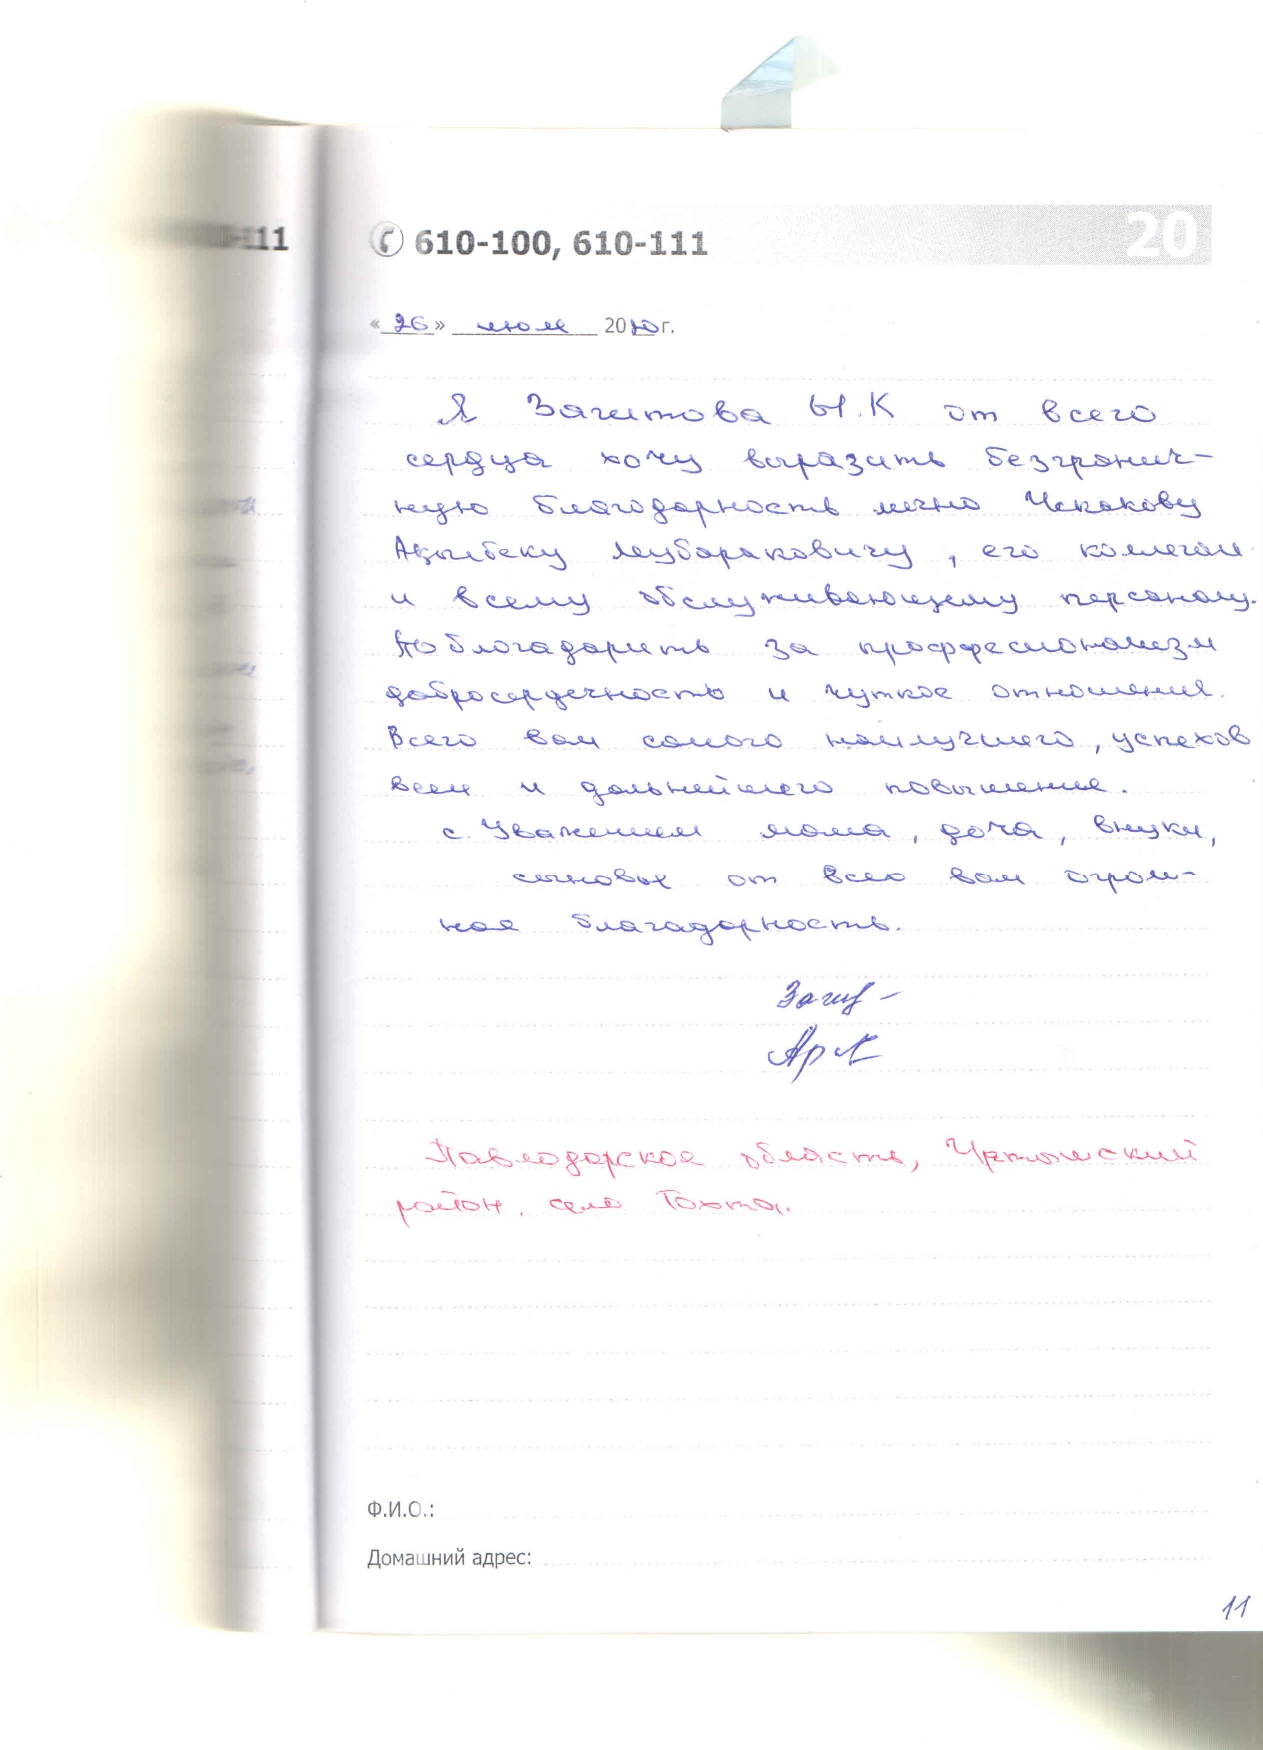 111
610-100, 610-111
20
«26» июля 2010 г.
Я Загитова Ы.К от всего
сердца хочу выразить безгранич-
ную благодарность лично Чекакову
Ақылбеку Мубараковичу, его коллегам
и всему обслуживающему персоналу.
Поблагадарить за профессионализм
добросердечность и чуткое отношения.
Всего вам самого наилучшего, успехов
всем и дальнейшего повышения.
с Уважением мама, доча, внуки,
сыновья от всех вам огром-
ная благадарность.
Павлодарское область, Иртышский
район, село Тохта.
Ф.И.О.:
Домашний адрес:
11